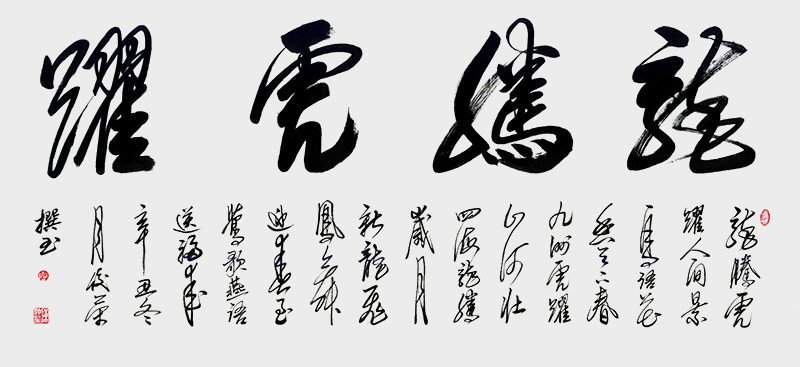 龍騰虎躍
龍騰虎
躍人間景
鳥語花
香天下春
九洲虎躍
山河壯
四海龍騰
歲月
新龍飛
鳳舞
迎春至
鶯歌燕語
送福來
辛丑冬
月俊榮
撰书